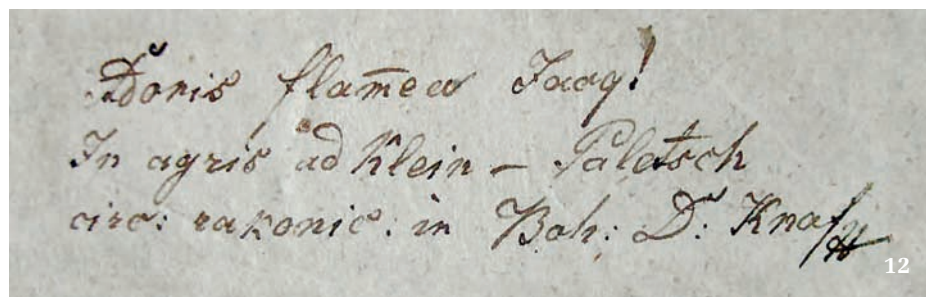 Adonis flam̄ea Jacq!
In agris ad Klein – Paletsch
circ: rakonic: in Boh: D: Knaf
12